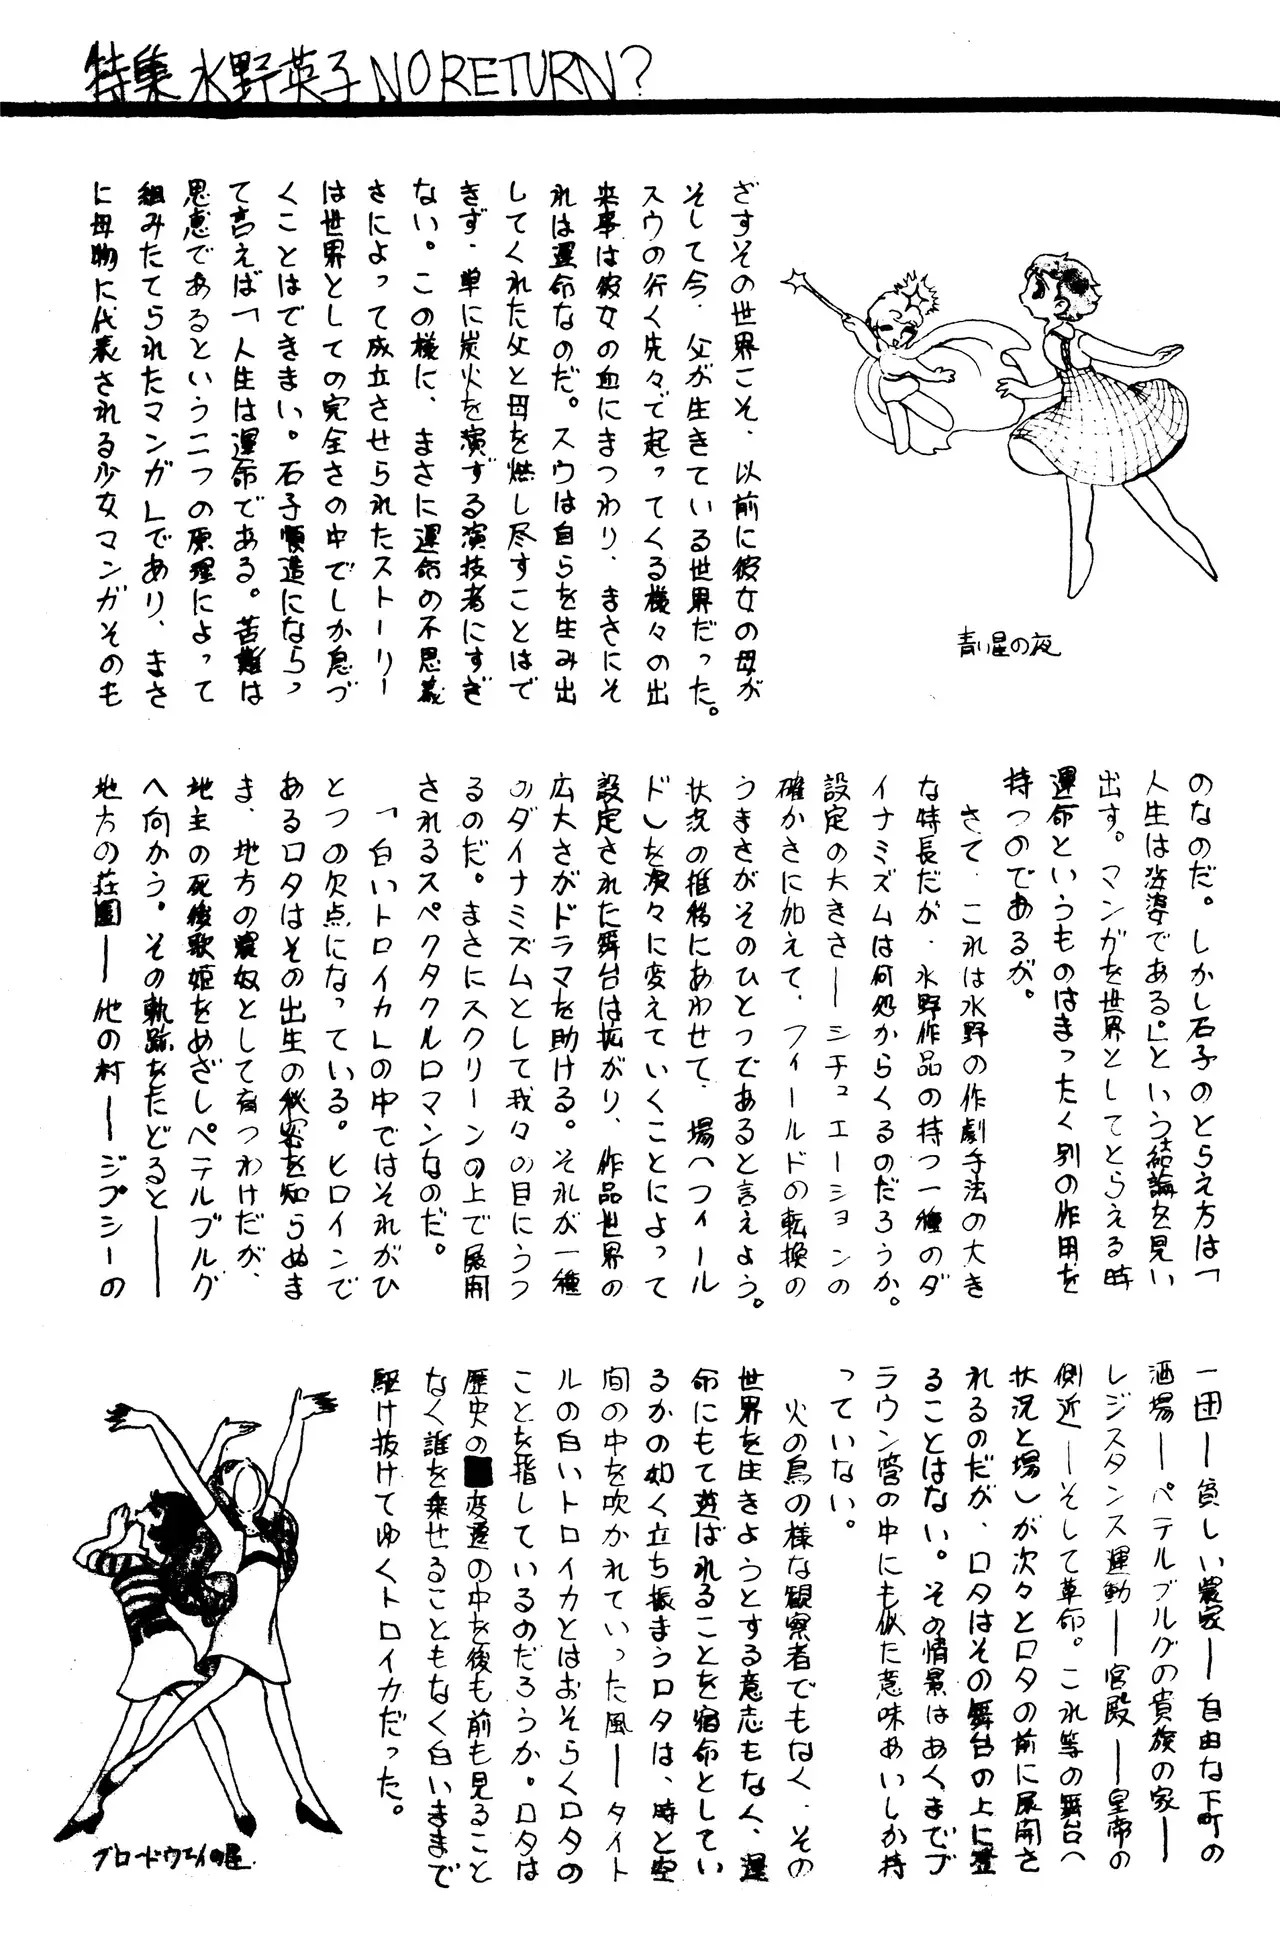 特集 水野英子 NO RETURN?
ざすその世界こそ、以前に彼女の母が
そして今、父が生きている世界だった。
スウの行く先々で起ってくる様々の出
来事は彼女の血にまつわり、まさにそ
れは運命なのだ。スウは自らを生み出
してくれた父と母を燃し尽すことはで
きず、単に炭火を演ずる演技者にすぎ
ない。この様に、まさに運命の不思議
さによって成立させられたストーリー
は世界としての完全さの中でしか息づ
くことはできまい。石子順造にならっ
て言えば「人生は運命である。苦難は
恩恵であるという二つの原理によって
組みたてられたマンガ」であり、まさ
に母物に代表される少女マンガそのも
青い星の夜
のなのだ。しかし石子のとらえ方は「
人生は必婆である」という結論を見い
出す。マンガを世界としてとらえる時
運命というものはまったく別の作用を
持つのであるが。
さて、これは水野の作劇手法の大き
な特長だが、水野作品の持つ一種のダ
イナミズムは何処からくるのだろうか。
設定の大きさ――シチュエーションの
確かさに加えて、フィールドの転換の
うまさがそのひとつであると言えよう。
状況の推移にあわせて、場(フィール
ド)を次々に変えていくことによって
設定された舞台は拡がり、作品世界の
広大さがドラマを助ける。それが一種
のダイナミズムとして我々の目にうつ
るのだ。まさにスクリーンの上で展開
されるスペクタクルロマンなのだ。
「白いトロイカ」の中ではそれがひ
とつの欠点になっている。ヒロインで
あるロタはその出生の秘密を知らぬま
ま、地方の農奴として育つわけだが、
地主の死後歌姫をめざしペテルブルグ
へ向かう。その軌跡をたどると――
地方の荘園――他の村――ジプシーの
一団――貧しい農家――自由な下町の
酒場――ペテルブルグの貴族の家――
レジスタンス運動――宮殿――皇帝の
側近――そして革命。これ等の舞台(
状況と場)が次々とロタの前に展開さ
れるのだが、ロタはその舞台の上に登
ることはない。その情景はあくまでブ
ラウン管の中にも似た意味あいしか持
っていない。
火の鳥の様な観察者でもなく、その
世界を生きようとする意志もなく、運
命にもて遊ばれることを宿命としてい
るかの如く立ち振まうロタは、時と空
間の中を吹かれていった風――タイト
ルの白いトロイカとはおそらくロタの
ことを指しているのだろうか。ロタは
歴史の変遷の中を後も前も見ること
なく誰を乗せることもなく白いままで
駆け抜けてゆくトロイカだった。
ブロードウェイの星